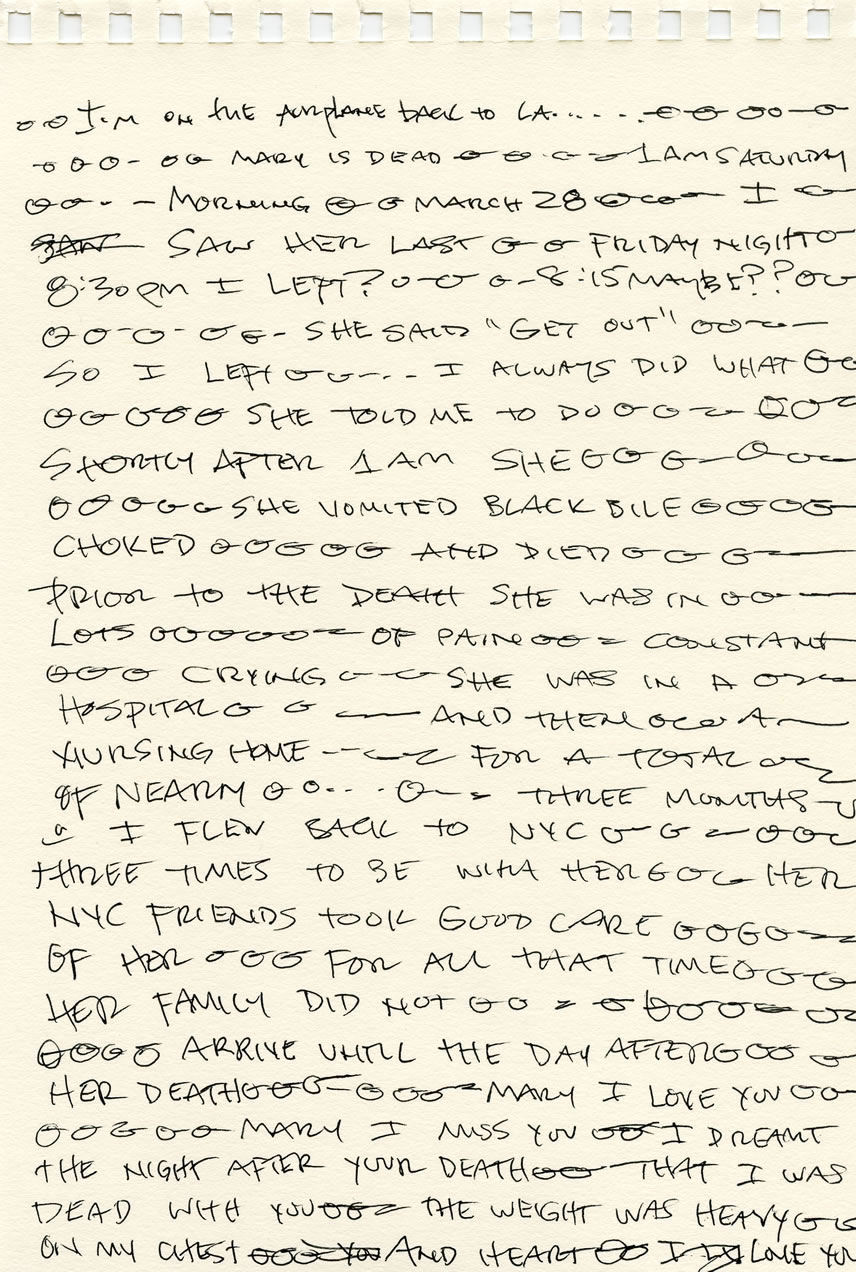 I'M ON THE AIRPLANE BACK TO LA.....
MARY IS DEAD 1 AM SATURDAY
MORNING MARCH 28 I
SAW HER LAST FRIDAY NIGHT
8:30 PM I LEFT? 8:15 MAYBE??
SHE SAID "GET OUT"
SO I LEFT --.. I ALWAYS DID WHAT
SHE TOLD ME TO DO
SHORTLY AFTER 1 AM SHE
SHE VOMITED BLACK BILE
CHOKED AND DIED
PRIOR TO THE DEATH SHE WAS IN
LOTS OF PAIN CONSTANT
CRYING SHE WAS IN A
HOSPITAL AND THEN A
NURSING HOME FOR A TOTAL
OF NEARLY THREE MONTHS
I FLEW BACK TO NYC
THREE TIMES TO BE WITH HER HER
NYC FRIENDS TOOK GOOD CARE
OF HER FOR ALL THAT TIME
HER FAMILY DID NOT
ARRIVE UNTILL THE DAY AFTER
HER DEATH MARY I LOVE YOU
MARY I MISS YOU I DREAMT
THE NIGHT AFTER YOUR DEATH THAT I WAS
DEAD WITH YOU THE WEIGHT WAS HEAVY
ON MY CHEST AND HEART I LOVE YOU